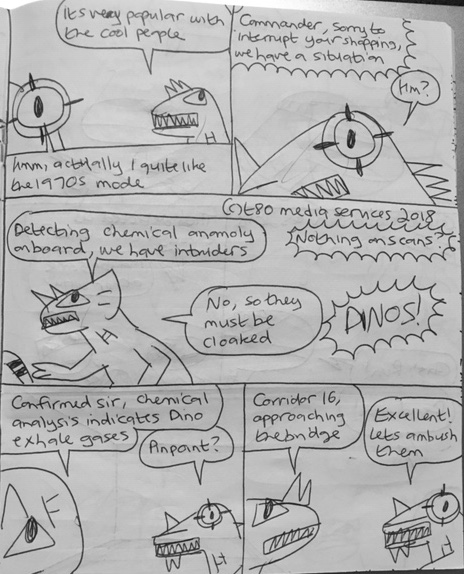 Its very popular with
the cool people
Hmm, actually I quite like
the 1970s mode
Commander, sorry to
interrupt your shopping,
we have a situation
Hm?
(C) t80 media services 2018
Detecting chemical anomoly
onboard, we have intruders
Nothing on scans?
No, so they
must be
cloaked
DINOS!
Confirmed sir, chemical
analysis indicates Dino
exhale gases
Pinpoint?
Corridor 16,
approaching
the bridge
Excellent!
Lets ambush
them